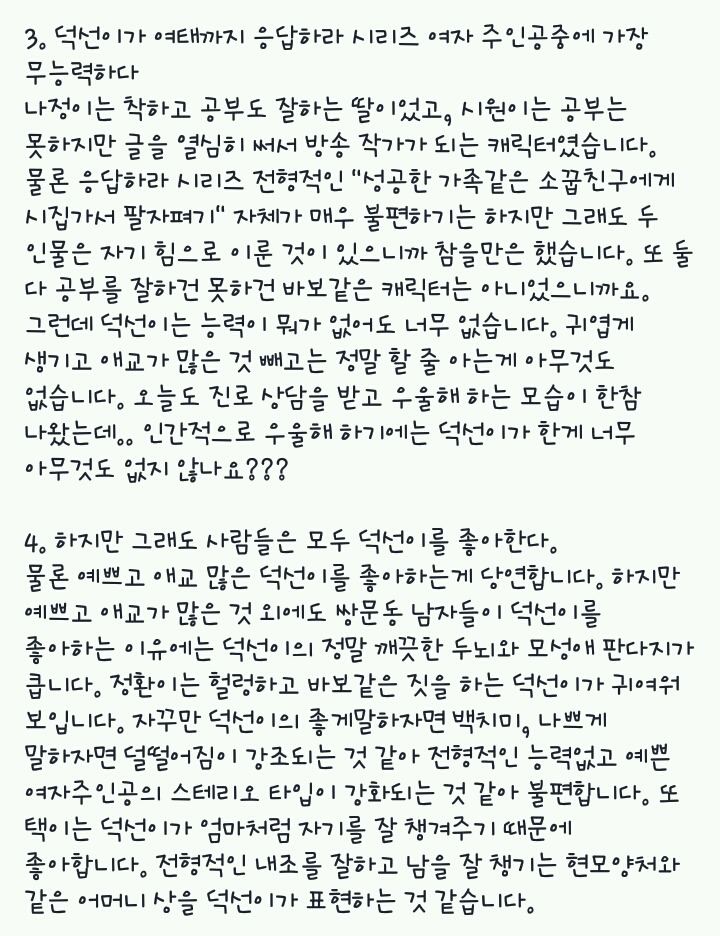 3. 덕선이가 여태까지 응답하라 시리즈 여자 주인공중에 가장
무능력하다
나정이는 착하고 공부도 잘하는 딸이었고, 시원이는 공부는
못하지만 글을 열심히 써서 방송 작가가 되는 캐릭터였습니다.
물론 응답하라 시리즈 전형적인 "성공한 가족같은 소꿉친구에게
시집가서 팔자펴기" 자체가 매우 불편하기는 하지만 그래도 두
인물은 자기 힘으로 이룬 것이 있으니까 참을만은 했습니다. 또 둘
다 공부를 잘하건 못하건 바보같은 캐릭터는 아니었으니까요.
그런데 덕선이는 능력이 뭐가 없어도 너무 없습니다. 귀엽게
생기고 애교가 많은 것 빼고는 정말 할 줄 아는게 아무것도
없습니다. 오늘도 진로 상담을 받고 우울해 하는 모습이 한참
나왔는데.. 인간적으로 우울해 하기에는 덕선이가 한게 너무
아무것도 없지 않나요???
4. 하지만 그래도 사람들은 모두 덕선이를 좋아한다.
물론 예쁘고 애교 많은 덕선이를 좋아하는게 당연합니다. 하지만
예쁘고 애교가 많은 것 외에도 쌍문동 남자들이 덕선이를
좋아하는 이유에는 덕선이의 정말 깨끗한 두뇌와 모성애 판다지가
큽니다. 정환이는 헐렁하고 바보같은 짓을 하는 덕선이가 귀여워
보입니다. 자꾸만 덕선이의 좋게말하자면 백치미, 나쁘게
말하자면 덜떨어짐이 강조되는 것 같아 전형적인 능력없고 예쁜
여자주인공의 스테리오 타입이 강화되는 것 같아 불편합니다. 또
택이는 덕선이가 엄마처럼 자기를 잘 챙겨주기 때문에
좋아합니다. 전형적인 내조를 잘하고 남을 잘 챙기는 현모양처와
같은 어머니 상을 덕선이가 표현하는 것 같습니다.